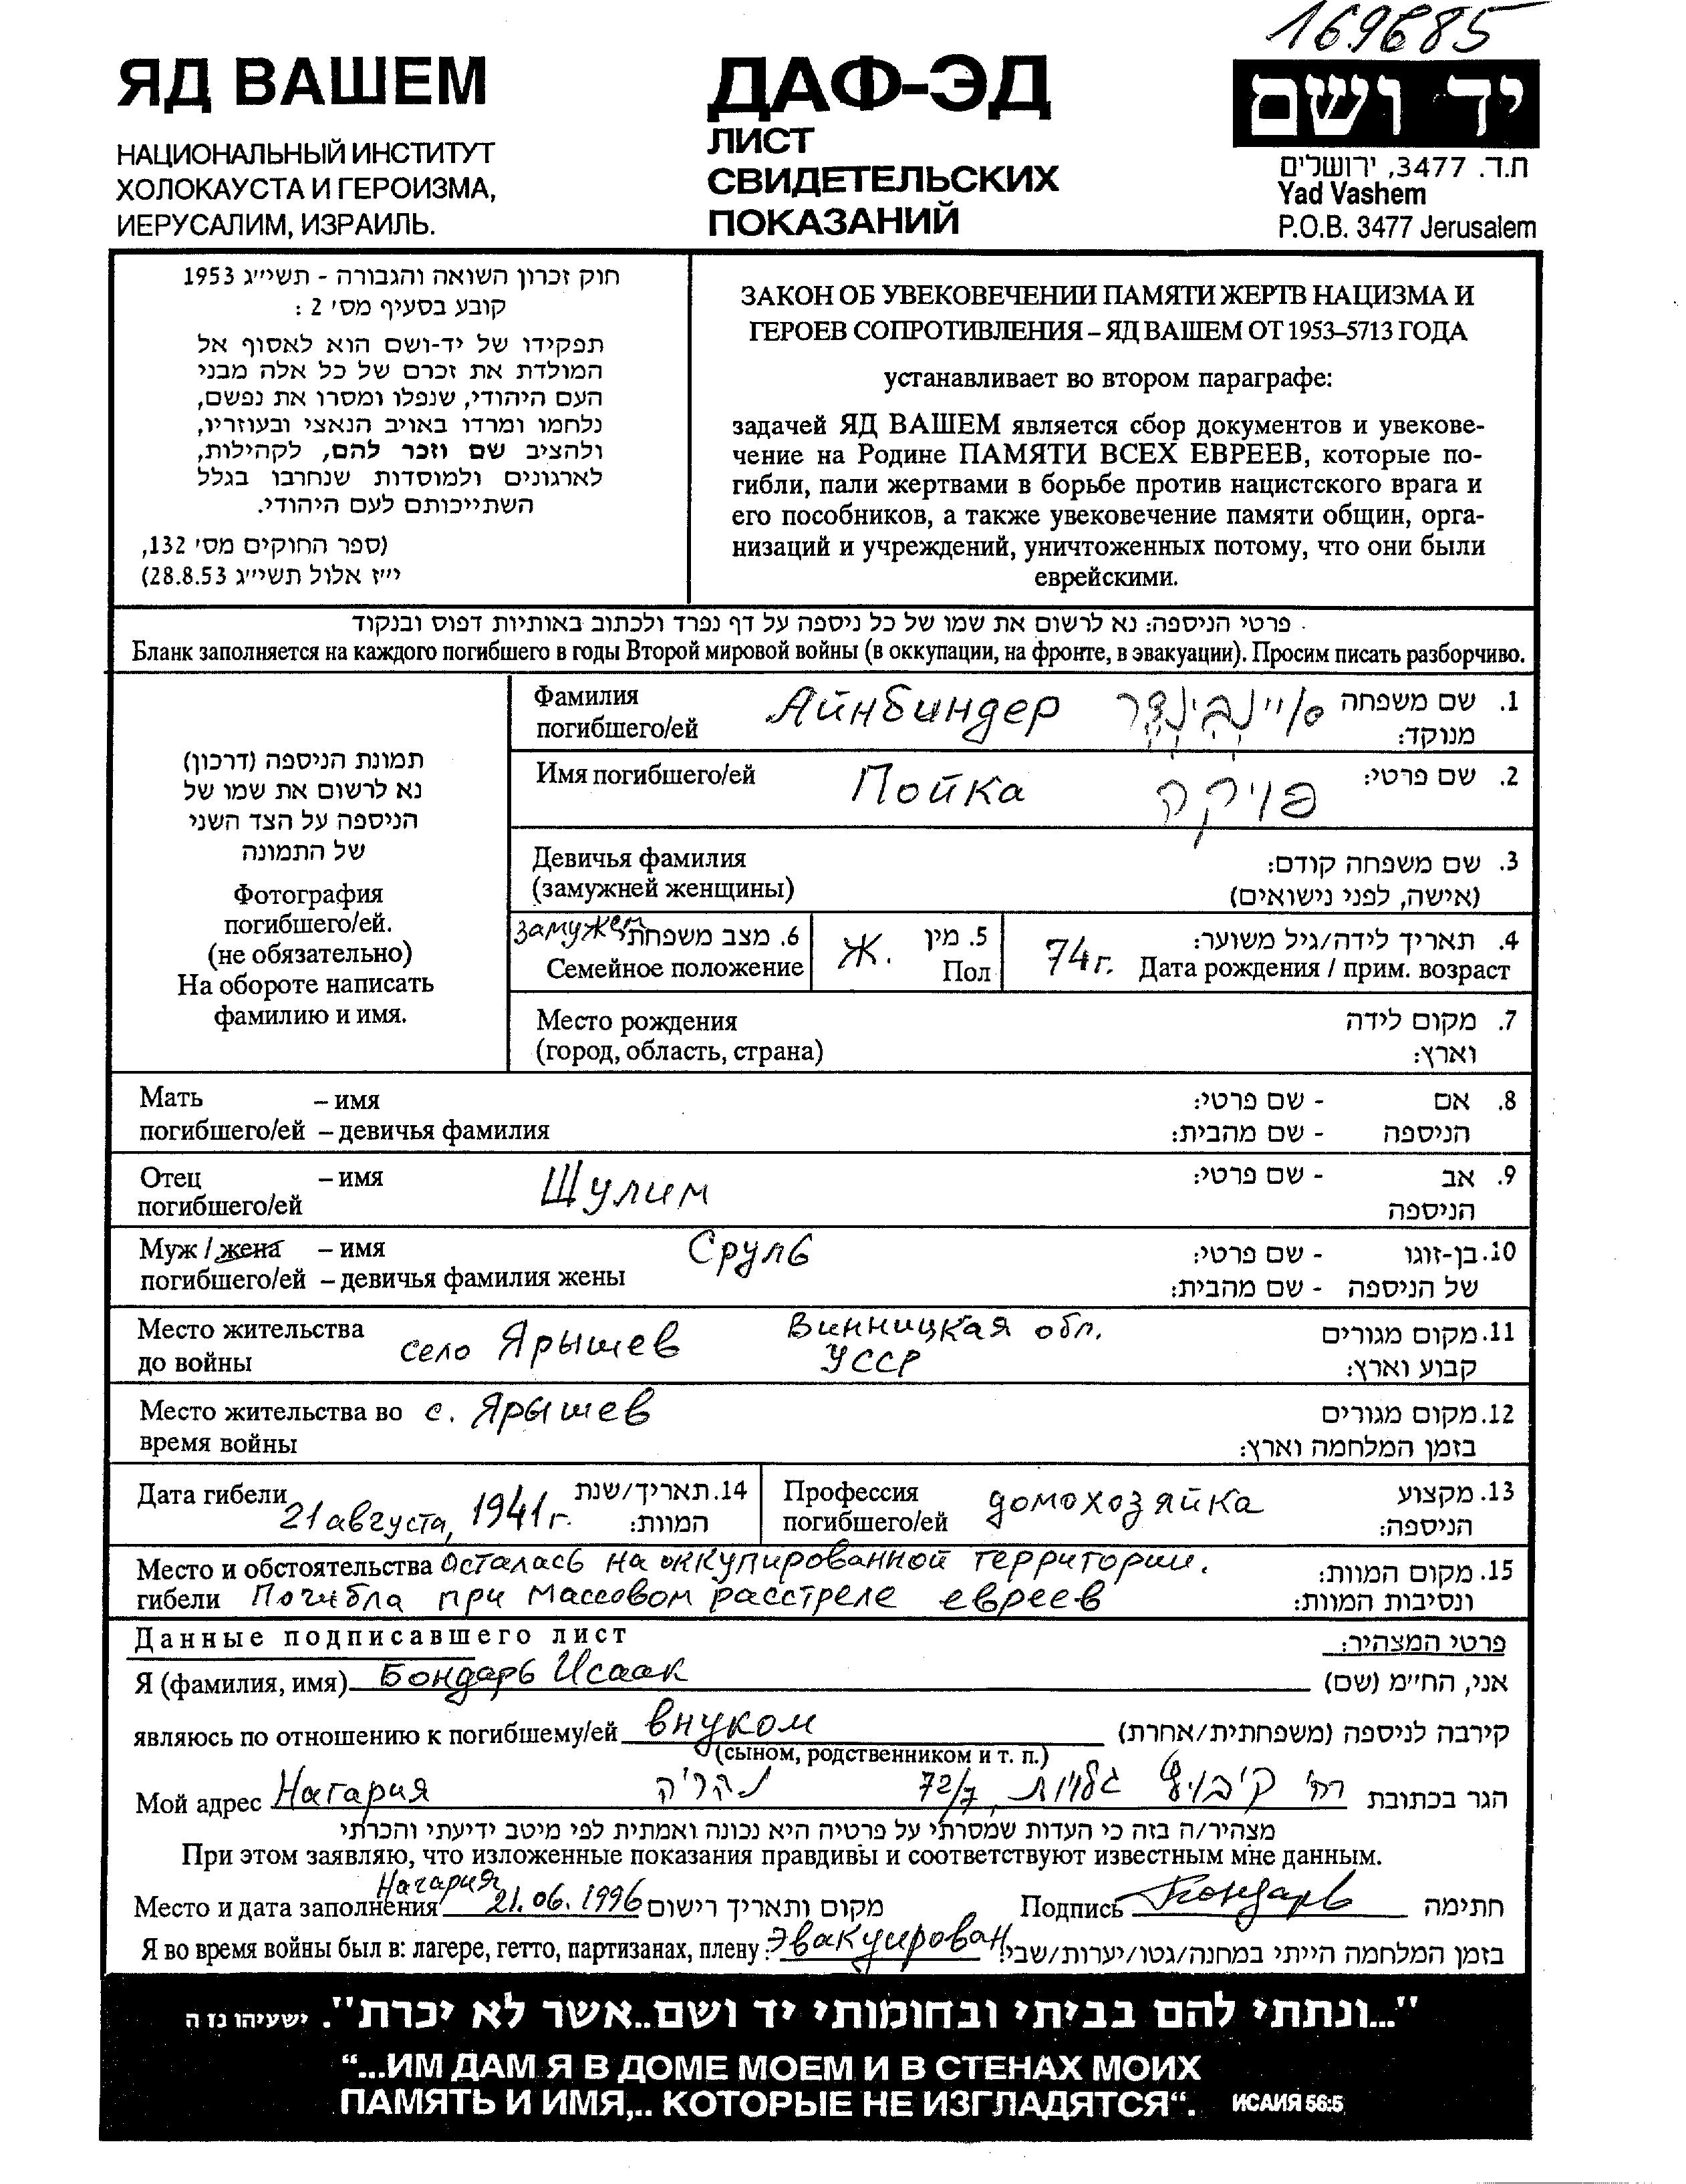 169685
ЯД ВАШЕМ
НАЦИОНАЛЬНЫЙ ИНСТИТУТ
ХОЛОКАУСТА И ГЕРОИЗМА,
ИЕРУСАЛИМ, ИЗРАИЛЬ.
ДАФ-ЭД
ЛИСТ
СВИДЕТЕЛЬСКИХ
ПОКАЗАНИЙ
יד ושם
ת.ד. 3477, ירושלים
Yad Vashem
P.O.B. 3477 Jerusalem
חוק זכרון השואה והגבורה - תשי״ג 1953
קובע בסעיף מס' 2 :
תפקידו של יד-ושם הוא לאסוף אל
המולדת את זכרם של כל אלה מבני
העם היהודי, שנפלו ומסרו את נפשם,
נלחמו ומרדו באויב הנאצי ובעוזריו,
ולהציב שם וזכר להם, לקהילות,
לארגונים ולמוסדות שנחרבו בגלל
השתייכותם לעם היהודי.
(ספר החוקים מס' 132,
י״ז אלול תשי״ג 28.8.53)
ЗАКОН ОБ УВЕКОВЕЧЕНИИ ПАМЯТИ ЖЕРТВ НАЦИЗМА И
ГЕРОЕВ СОПРОТИВЛЕНИЯ – ЯД ВАШЕМ ОТ 1953–5713 ГОДА
устанавливает во втором параграфе:
задачей ЯД ВАШЕМ является сбор документов и увекове-
чение на Родине ПАМЯТИ ВСЕХ ЕВРЕЕВ, которые по-
гибли, пали жертвами в борьбе против нацистского врага и
его пособников, а также увековечение памяти общин, орга-
низаций и учреждений, уничтоженных потому, что они были
еврейскими.
פרטי הניספה: נא לרשום את שמו של כל ניספה על דף נפרד ולכתוב באותיות דפוס ובנקוד
Бланк заполняется на каждого погибшего в годы Второй мировой войны (в оккупации, на фронте, в эвакуации). Просим писать разборчиво.
תמונת הניספה (דרכון)
נא לרשום את שמו של
הניספה על הצד השני
של התמונה
Фотография
погибшего/ей.
(не обязательно)
На обороте написать
фамилию и имя.
Фамилия Айнбиндер איינבינדר 1. שם משפחה
погибшего/ей מנוקד:
Имя погибшего/ей Пойка פויקה 2. שם פרטי:
Девичья фамилия 3. שם משפחה קודם:
(замужней женщины) (אישה, לפני נישואים)
замужем 6. מצב משפחתי Ж. 5. מין 74г. 4. תאריך לידה/גיל משוער:
Семейное положение Пол Дата рождения / прим. возраст
Место рождения 7. מקום לידה
(город, область, страна) וארץ:
Мать – имя 8. אם - שם פרטי:
погибшего/ей – девичья фамилия הניספה - שם מהבית:
Отец – имя Шулим 9. אב - שם פרטי:
погибшего/ей הניספה
Муж / жена – имя Сруль 10. בן-זוגו - שם פרטי:
погибшего/ей – девичья фамилия жены של הניספה - שם מהבית:
Место жительства село Ярышев Винницкая обл. 11. מקום מגורים
до войны УССР קבוע וארץ:
Место жительства во с. Ярышев 12. מקום מגורים
время войны בזמן המלחמה וארץ:
Дата гибели 21 августа, 1941г. 14. תאריך/שנת
המוות:
Профессия домохозяйка 13. מקצוע
погибшего/ей הניספה:
Место и обстоятельства Осталась на оккупированной территории. 15. מקום המוות:
гибели Погибла при массовом расстреле евреев ונסיבות המוות:
Данные подписавшего лист פרטי המצהיר:
Я (фамилия, имя) Бондарь Исаак אני, החי״מ (שם)
являюсь по отношению к погибшему/ей внуком קירבה לניספה (משפחתית/אחרת)
(сыном, родственником и т. п.)
Мой адрес Нагария רח' קיבוץ גלויות 72/7, נהריה הגר בכתובת
מצהיר/ה בזה כי העדות שמסרתי על פרטיה היא נכונה ואמתית לפי מיטב ידיעתי והכרתי
При этом заявляю, что изложенные показания правдивы и соответствуют известным мне данным.
Место и дата заполнения Нагария 21.06.1996 מקום ותאריך רישום Подпись Бондарь חתימה
Я во время войны был в: лагере, гетто, партизанах, плену: Эвакуирован בזמן המלחמה הייתי במחנה/גטו/יערות/שבי:
"...ונתתי להם בביתי ובחומותי יד ושם..אשר לא יכרת". ישעיהו נז ה
“...ИМ ДАМ Я В ДОМЕ МОЕМ И В СТЕНАХ МОИХ
ПАМЯТЬ И ИМЯ,.. КОТОРЫЕ НЕ ИЗГЛАДЯТСЯ“. ИСАИЯ 56:5